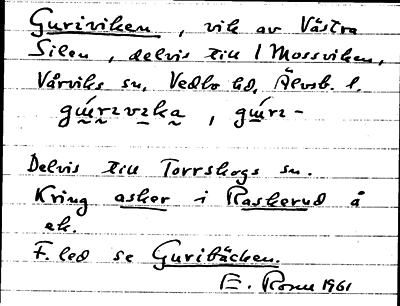 Guriviken, vik av Västra
Silen, delvis till / Mossviken,
Vårviks sn, Vedbo hd, Älvsb. l.
Delvis till Torrskogs sn.
Kring asker i Raskerud å
ek.
F. led se Guribäcken.
E. Rosell 1961